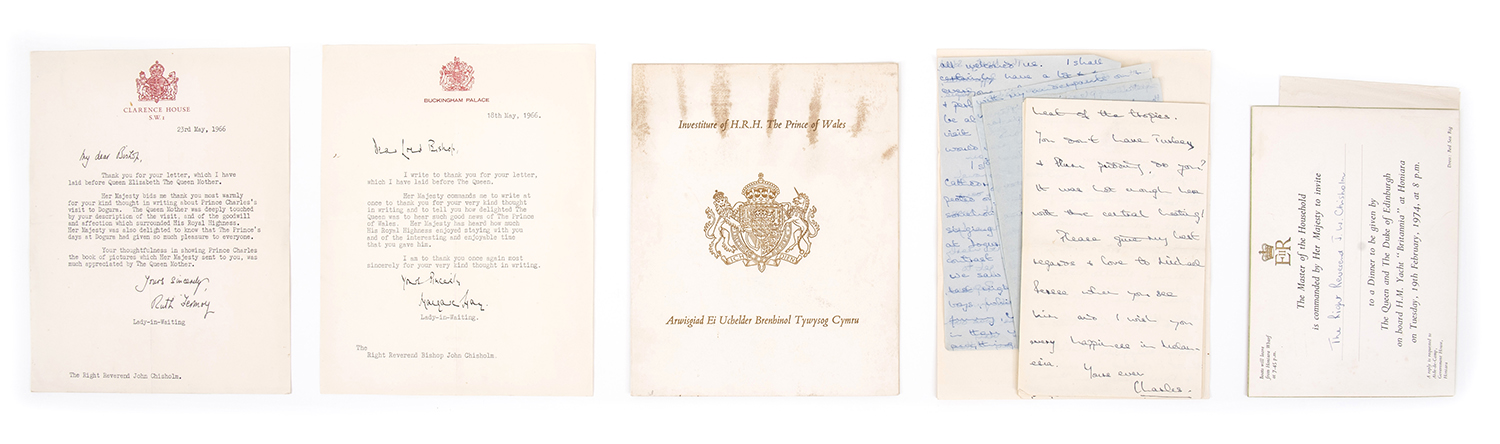 CLARENCE HOUSE
S.W.1
23rd May, 1966
My dear Bishop,
Thank you for your letter, which I have
laid before Queen Elizabeth The Queen Mother.
Her Majesty bids me thank you most warmly
for your kind thought in writing about Prince Charles's
visit to Dogura. The Queen Mother was deeply touched
by your description of the visit, and of the goodwill
and affection which surrounded His Royal Highness.
Her Majesty was also delighted to know that The Prince's
days at Dogura had given so much pleasure to everyone.
Your thoughtfulness in showing Prince Charles
the book of pictures which Her Majesty sent to you, was
much appreciated by The Queen Mother.
Yours sincerely
Ruth Fermoy
Lady-in-Waiting
The Right Reverend John Chisholm.
BUCKINGHAM PALACE
18th May, 1966.
Dear Lord Bishop,
I write to thank you for your letter,
which I have laid before The Queen.
Her Majesty commands me to write at
once to thank you for your very kind thought
in writing and to tell you how delighted The
Queen was to hear such good news of The Prince
of Wales. Her Majesty has heard how much
His Royal Highness enjoyed staying with you
and of the interesting and enjoyable time
that you gave him.
I am to thank you once again most
sincerely for your very kind thought in writing.
Yours sincerely
Margaret Hay.
Lady-in-Waiting.
The
Right Reverend Bishop John Chisholm.
Investiture of H.R.H. The Prince of Wales
Arwisgiad Ei Uchelder Brenhinol Tywysog Cymru
all welcomed me. I shall
certainly have a lot
everyone
be al
visit
would
I sh
at Dogura
contrast
We saw
last night
boys,
in their
everything
heat of the tropics.
You don't have Turkey
& plum pudding do you?
It was hot enough here
with the central heating!
Please give my best
regards & love to Michael
when you see
him and I wish you
every happiness in
esia.
Yours ever
Charles
EIIR
The Master of the Household
is commanded by Her Majesty to invite
The Right Reverend J. W. Chisholm
to a Dinner to be given by
The Queen and The Duke of Edinburgh
on board H.M. Yacht "Britannia" at Honiara
on Tuesday, 19th February, 1974, at 8 p.m.
Boats will leave
from Honiara Wharf
at 7.45 p.m.
A reply is requested to
Aide-de-Camp,
Government House,
Honiara
Dress: Red Sea Rig